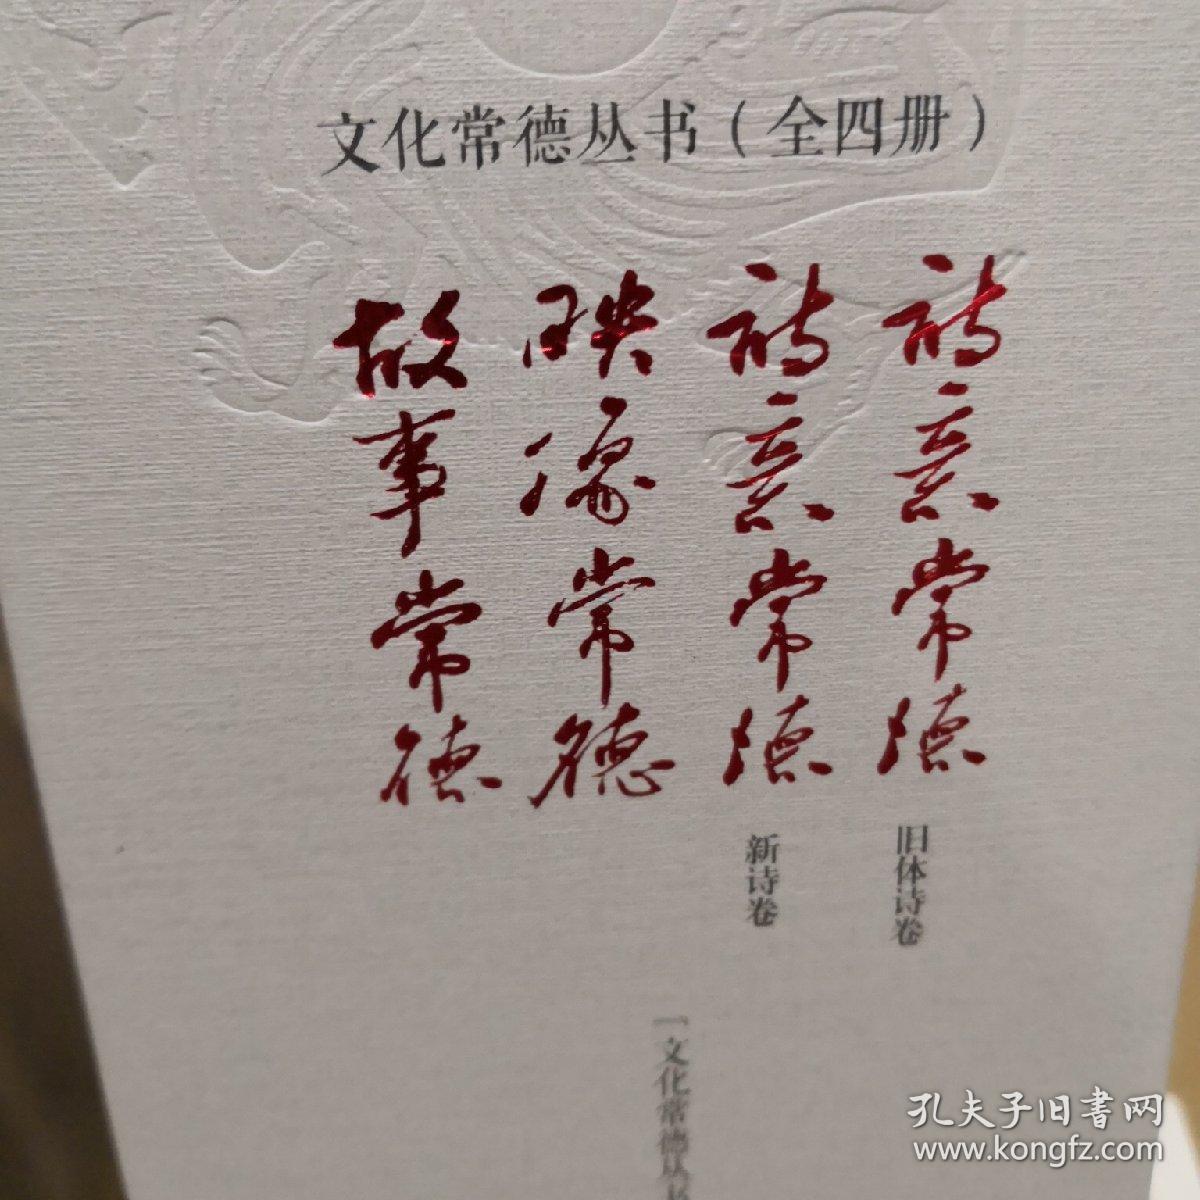 文化常德丛书（全四册）
诗意常德
旧体诗卷
诗意常德
新诗卷
映像常德
故事常德
[文化常德丛书
孔夫子旧書网
www.kongfz.com